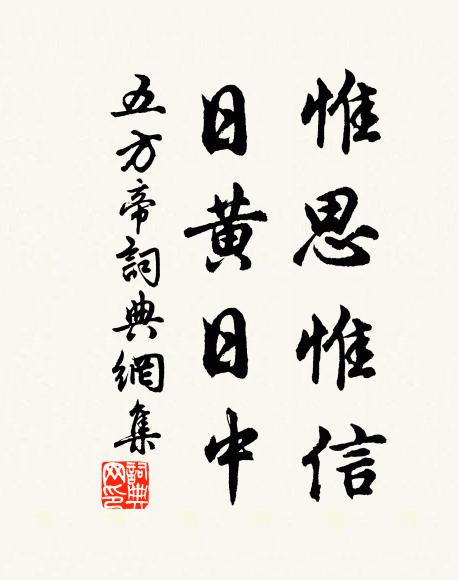 惟思惟信
日黃日中
五方帝詞典網集
詞典網印